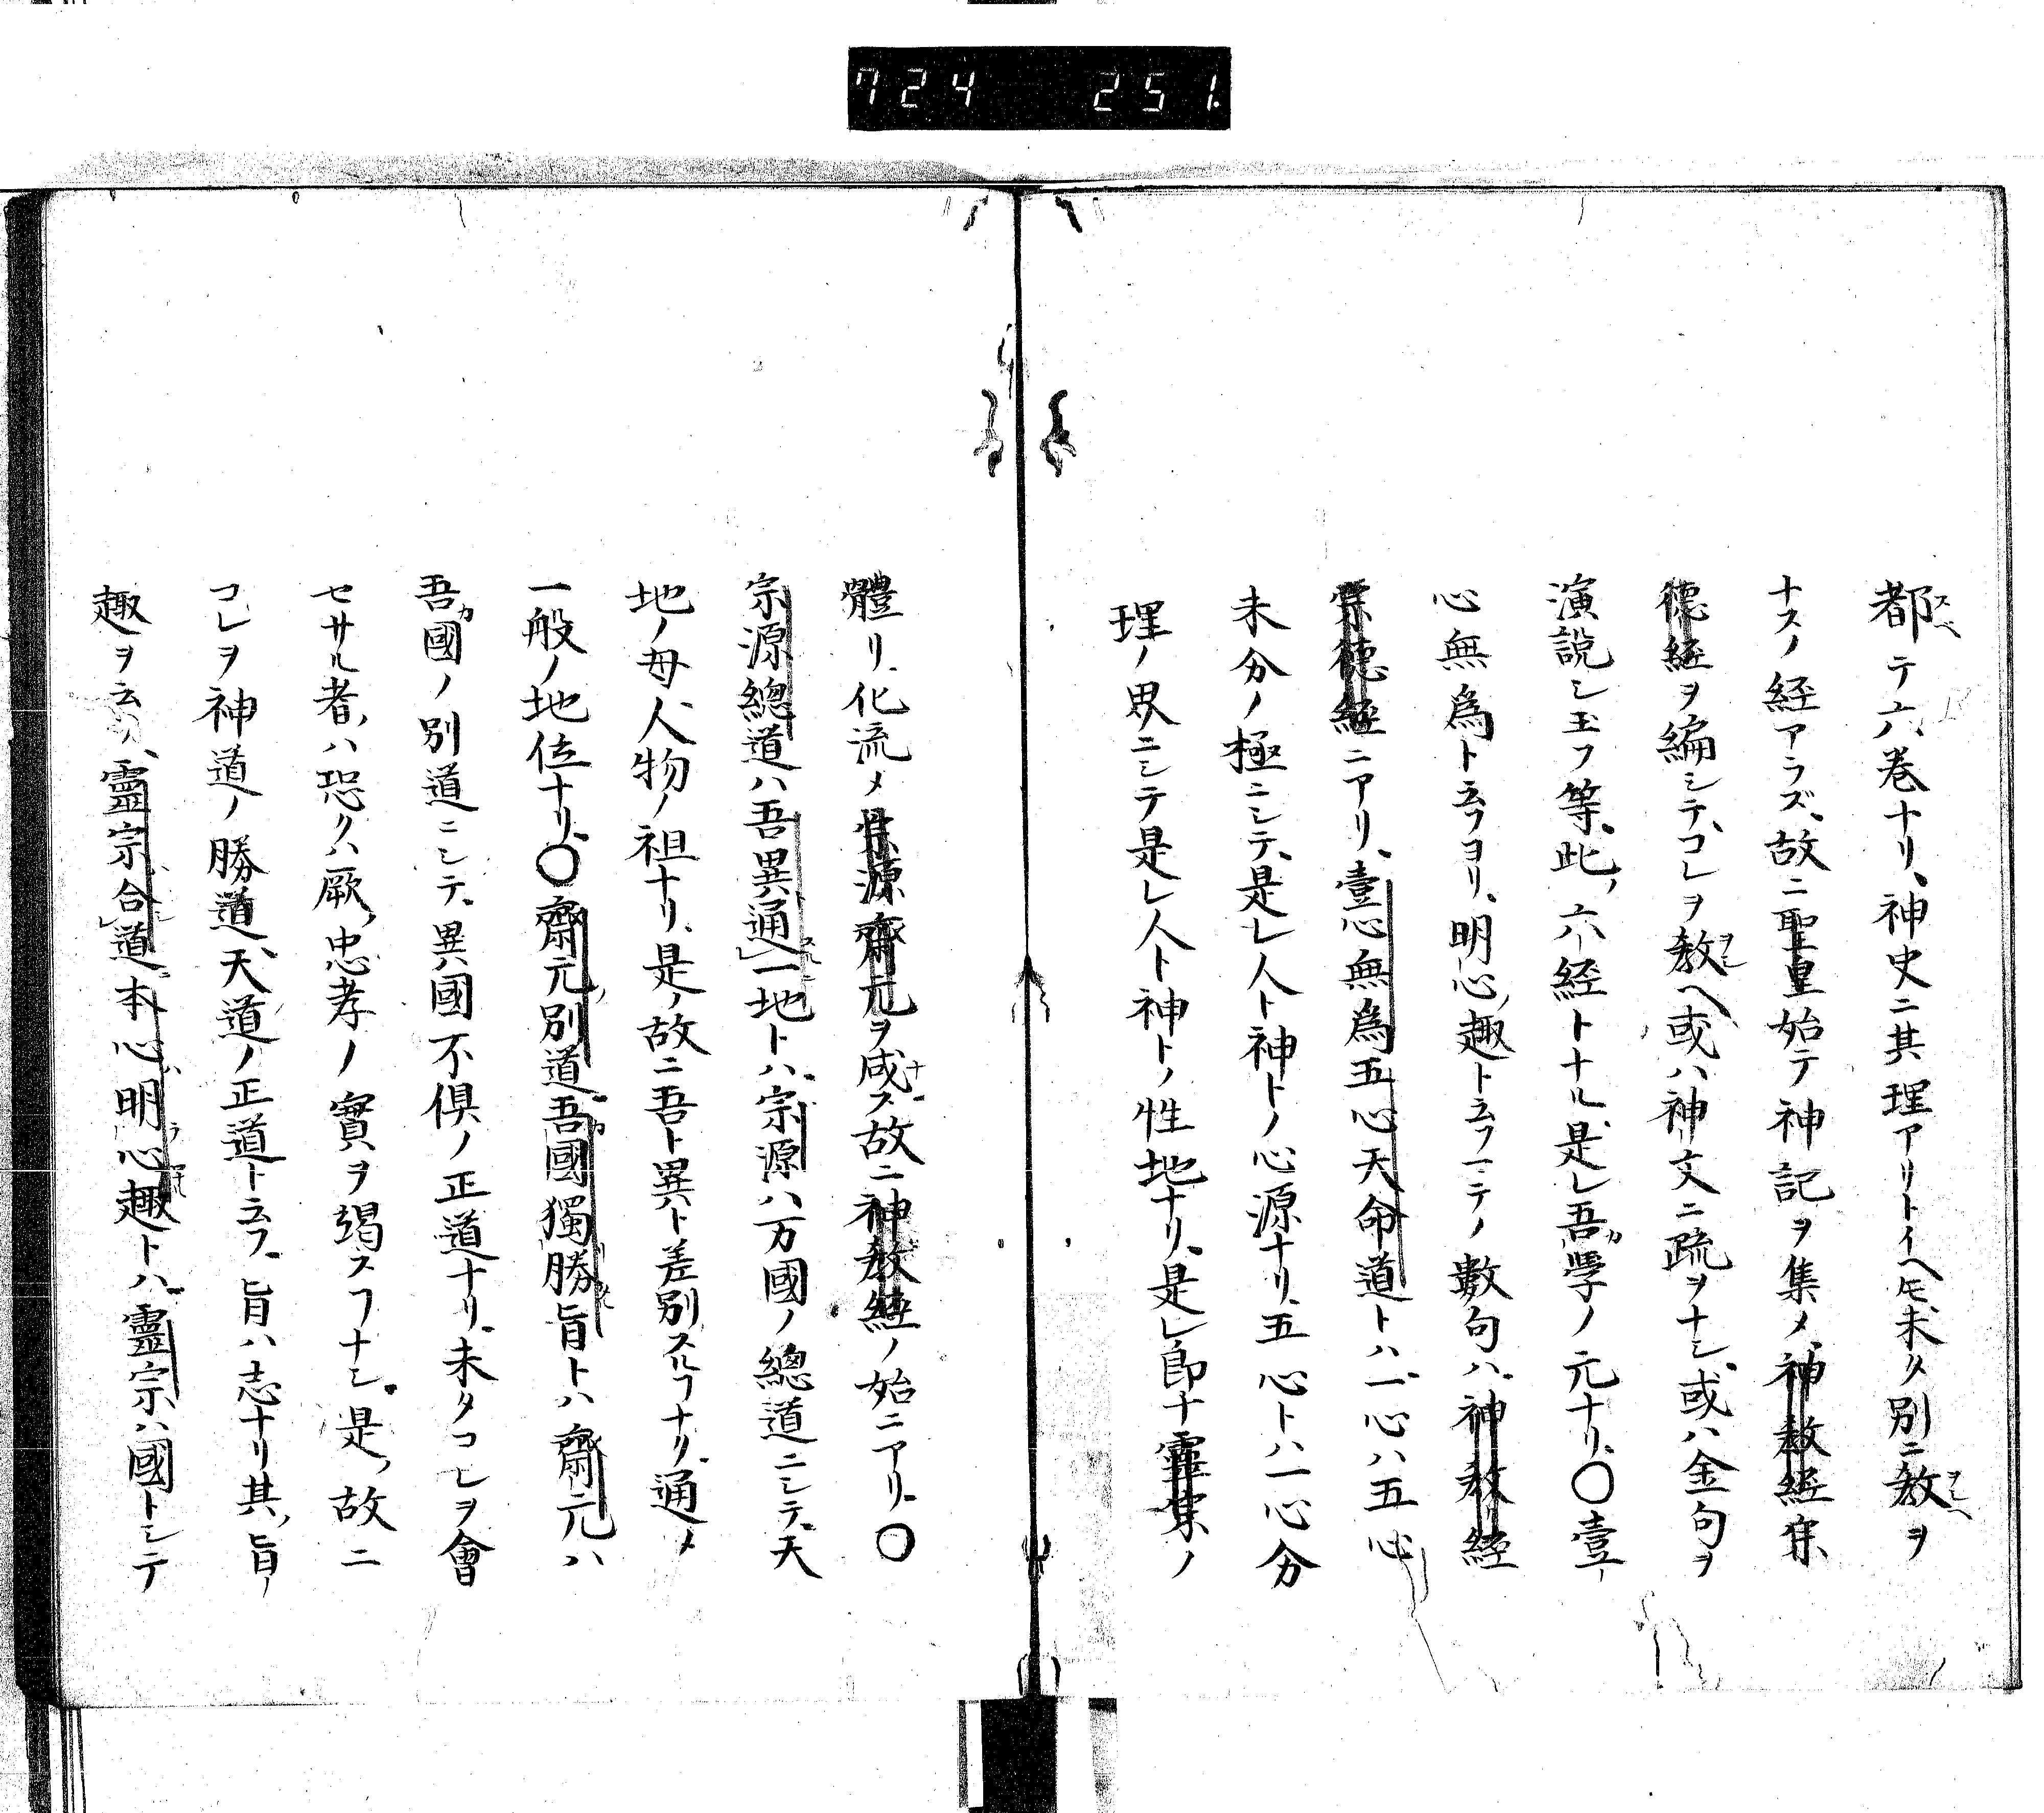 724 251.
都テ六巻ナリ、神史ニ其理アリトイヘ圧、未タ別ニ教ヲ
ナスノ経アラズ、故ニ聖皇始テ神記ヲ集メ、神教経宗
徳経ヲ編シテ、コレヲ教ヘ或ハ神文ニ疏ヲナシ、或ハ金句ヲ
演説シ玉フ等、此ノ六経トナル、是レ吾カ学ノ元ナリ、〇壹ノ
心無為ト云フヨリ、明心ノ趣ト云フニテノ數句ハ、神教経
宗徳経ニアリ、壹心無為五心天命道トハ、一心ハ五心
未分ノ極ニシテ、是レ人ト神トノ心源ナリ、五心トハ一心分
理ノ界ニシテ是レ人ト神トノ性地ナリ、是レ即ナ霊宗ノ
體リ、化流メ宗源齋元ヲ成ス、故ニ神教経ノ始ニアリ、〇
宗源總道ハ吾異通一地トハ、宗源ハ万國ノ總道ニシテ、天
地ノ母、人物ノ祖ナリ、是ノ故ニ吾ト異ト差別スルフナリ、通メ
一般ノ地位ナリ、〇齋元ノ別道、吾國獨勝旨トハ齋元ハ
吾カ國ノ別道ニシテ、異國不倶ノ正道ナリ、未タコレヲ會
セサル者ハ恐クハ厥ノ忠孝ノ實ヲ竭スフナシ、是ノ故ニ
コレヲ神道ノ勝道、天道ノ正道ト云フ、旨ハ志ナリ其ノ旨ノ
趣ヲ云、靈宗合道本心明心趣トハ、靈宗ハ國トシテ